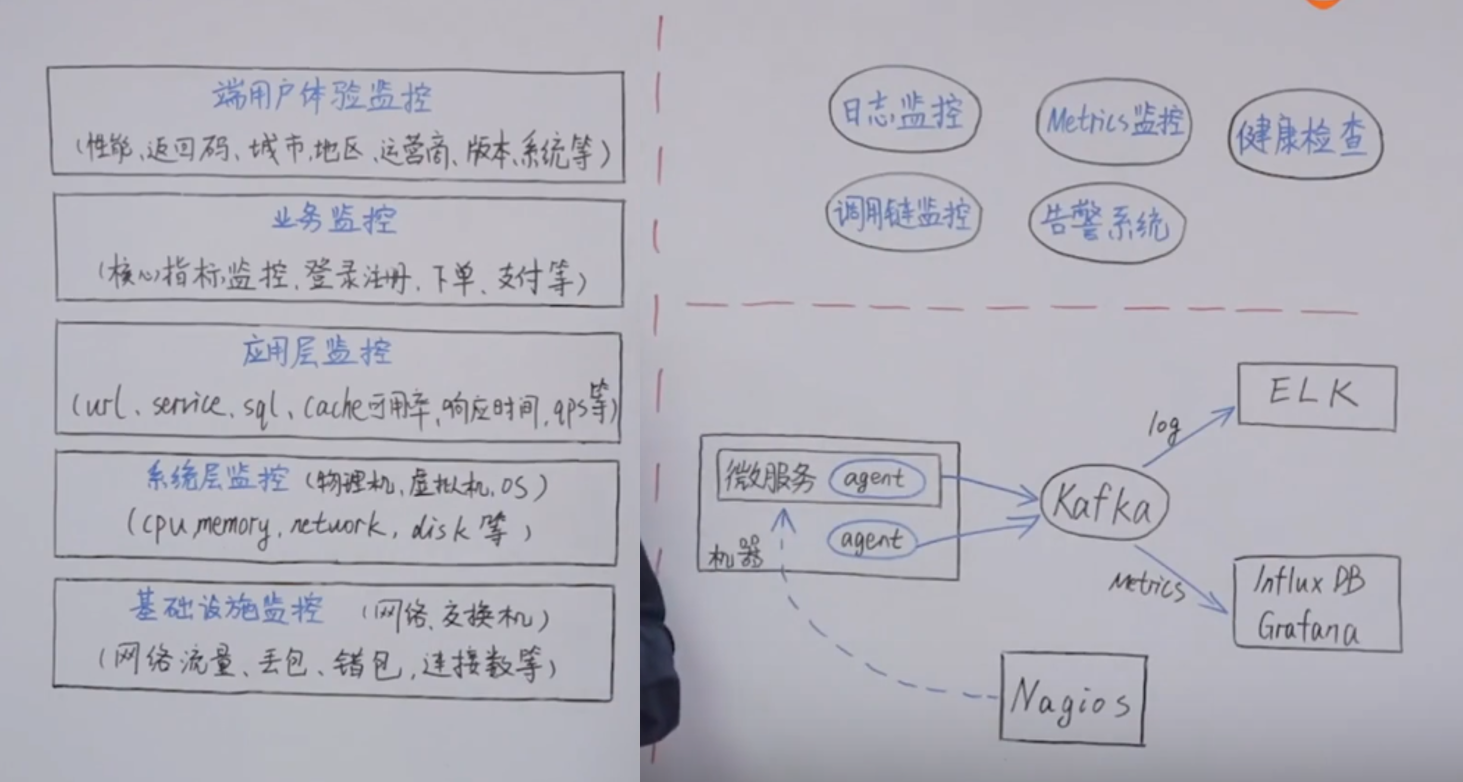 端用户体验监控
(性能、返回码、城市、地区、运营商、版本、系统等)
业务监控
(核心指标监控、登录注册、下单、支付等)
应用层监控
(url、service、sql、cache可用率,响应时间,qps等)
系统层监控 (物理机,虚拟机,OS)
(cpu,memory,network,disk等)
基础设施监控 (网络、交换机)
(网络流量、丢包、错包,连接数等)
日志监控
Metrics监控
健康检查
调用链监控
告警系统
ELK
log
微服务 agent
Kafka
agent
机器
Metrics
Influx DB
Grafana
Nagios